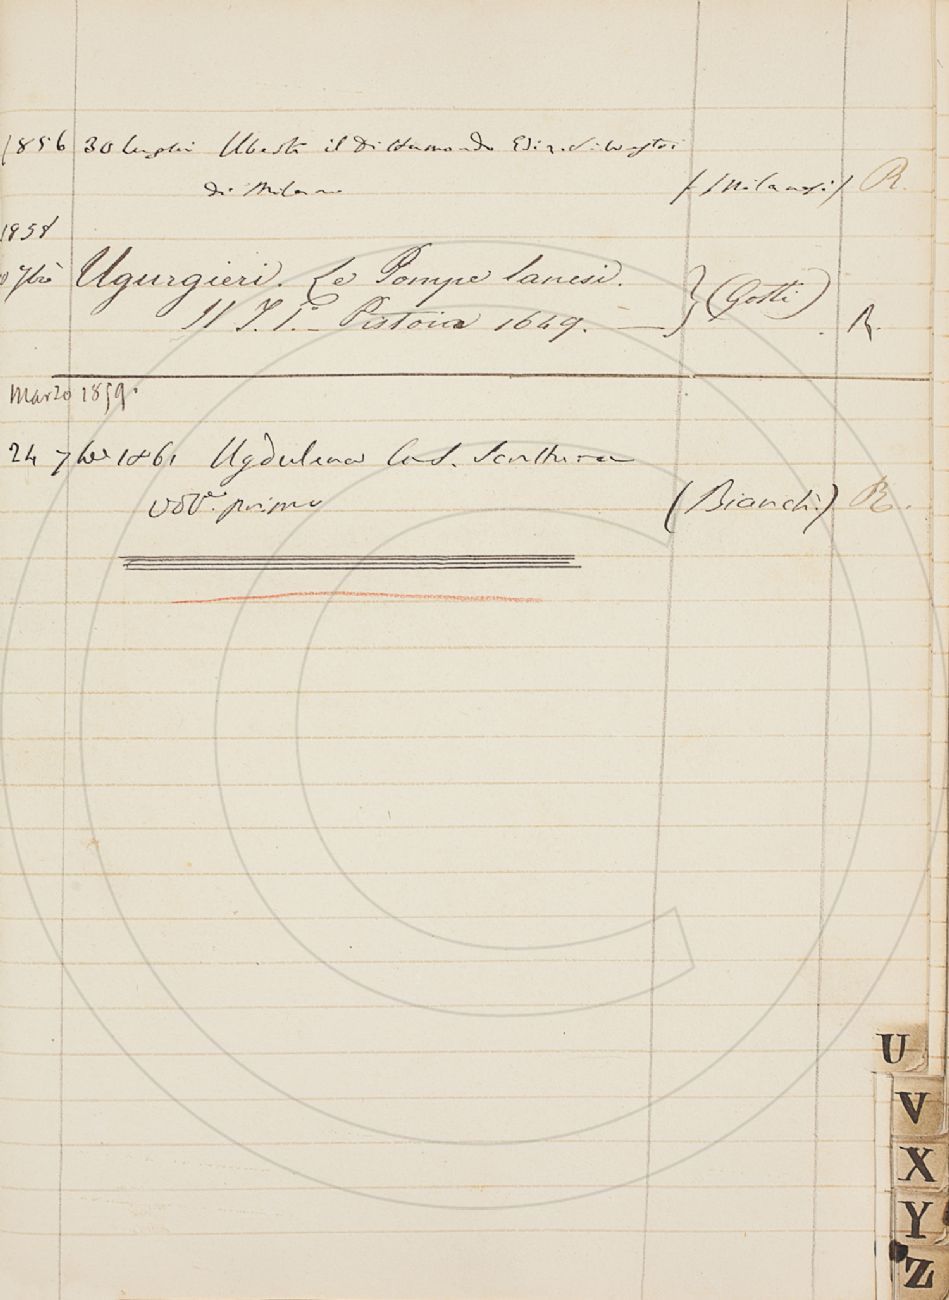 1856 30 luglio Uberti il Dittamondo Ediz. Silvestri
di Milano
(Milanesi) R.
1858
7bre Ugurgieri. Le Pompe Sanesi.
(Gotti)
Pistoia 1649. R.
Marzo 1859.
24 7bre 1861 Ugdulena La S. Scrittura
vol.e primo
(Bianchi) R.
U
V
X
Y
Z